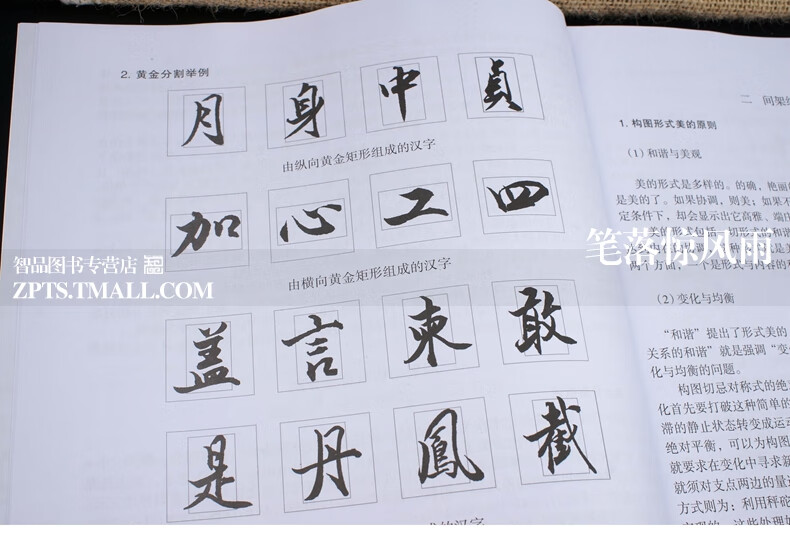 2. 黄金分割举例
月 身 中 贞
由纵向黄金矩形组成的汉字
加 心 工 四
由横向黄金矩形组成的汉字
盖 言 柬 敢
是 丹 鳳 截
的汉字
二 间架结
1. 构图形式美的原则
(1)和谐与美观
美的形式是多样的。的确,艳丽
是美的了。如果协调,则美;如果不
定条件下,却会显示出它高雅、端庄
两个方面,一个是形式与内容的和
(2)变化与均衡
“和谐”提出了形式美的
关系的和谐”就是强调“变
化与均衡的问题。
构图切忌对称式的绝
化首先要打破这种简单的
滞的静止状态转变成运动
绝对平衡,可以为构图
就要求在变化中寻求新
就须对支点两边的量进
方式则为:利用秤砣
笔落惊风雨
智品图书专营店
ZPTS.TMALL.COM